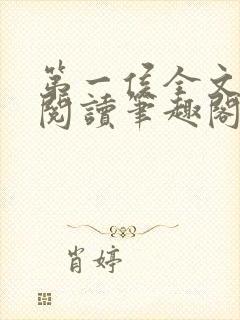 第一侯全文
閱讀筆趣閣
肖婷